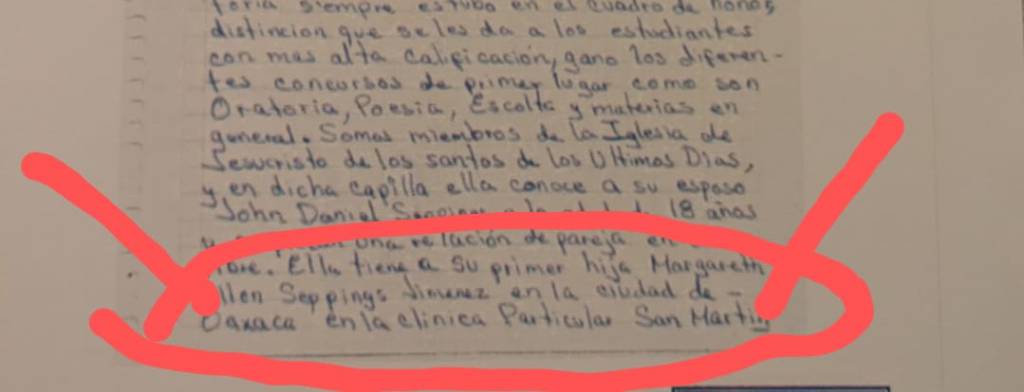 toria siempre estubo en el cuadro de honor,
distincion que se les da a los estudiantes
con mas alta calificación, gano los diferen-
tes concursos de primer lugar como son
Oratoria, Poesia, Escolta y materias en
general. Somos miembros de la Iglesia de
Jesucristo de los santos de los Ultimos Dias,
y en dicha capilla ella conoce a su esposo
John Daniel 18 años
una relación de pareja en
Ella tiene a su primer hija Margareth
Seppings Jimenez en la ciudad de -
Oaxaca en la clinica Particular San Martin